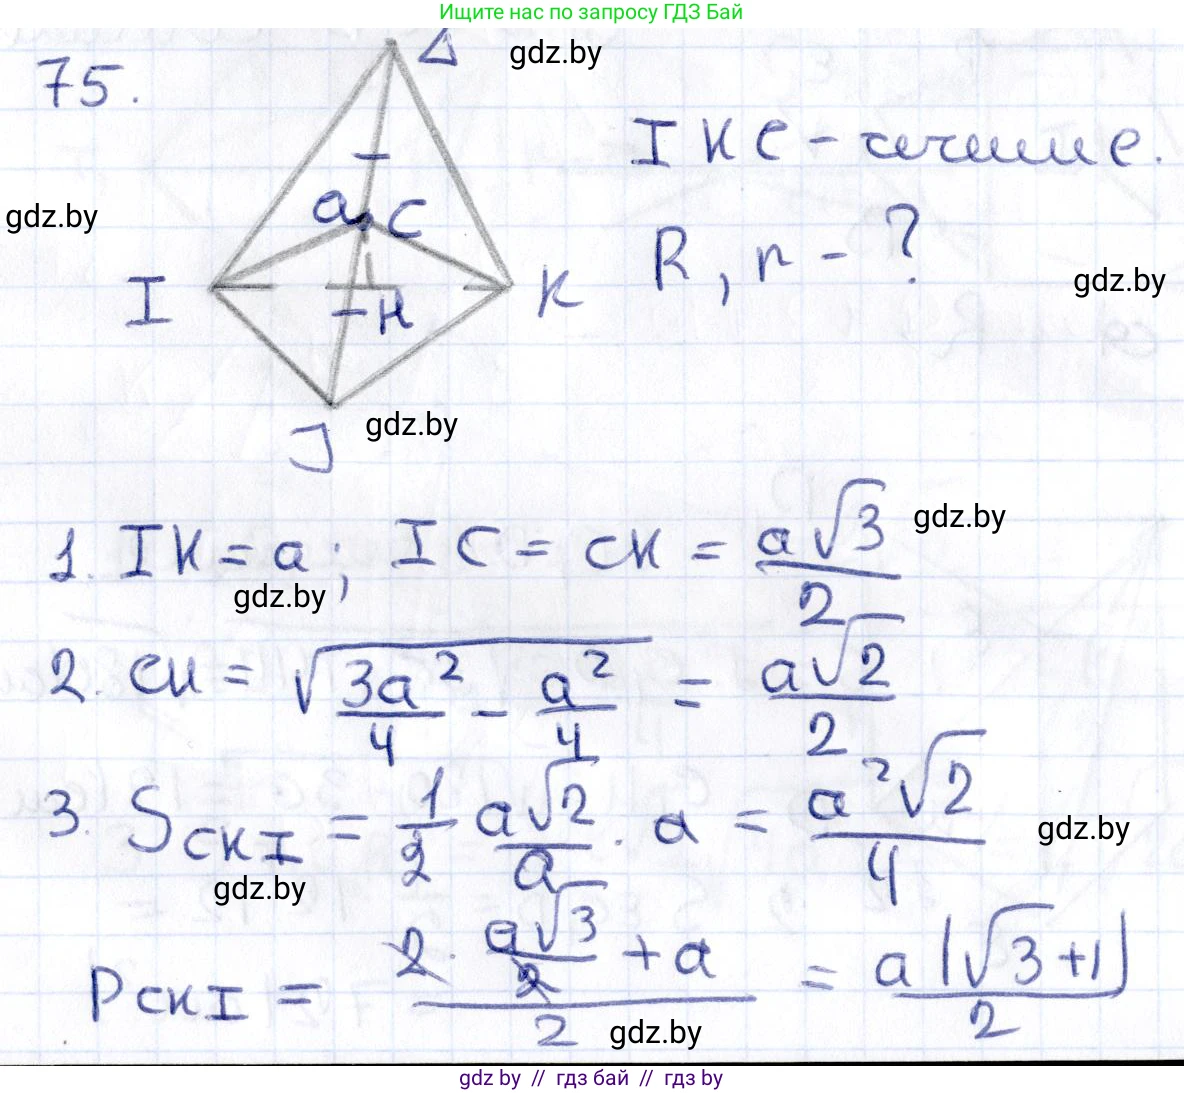 Ищите нас по запросу ГДЗ Бай
75.
Δ
gdz.by
IKC - сечение.
gdz.by
a
C
R, r - ?
gdz.by
I
K
H
gdz.by
J
1. IK = a; IC = CK = a√3/2
gdz.by
gdz.by
2. CH = √(3a²/4 - a²/4) = a√2/2
3. S CKI = 1/2 a√2/a · a = a²√2/4
gdz.by
gdz.by
P CKI = (2 · a√3/2 + a)/2 = a(√3+1)/2
gdz.by
gdz by // гдз бай // гдз by